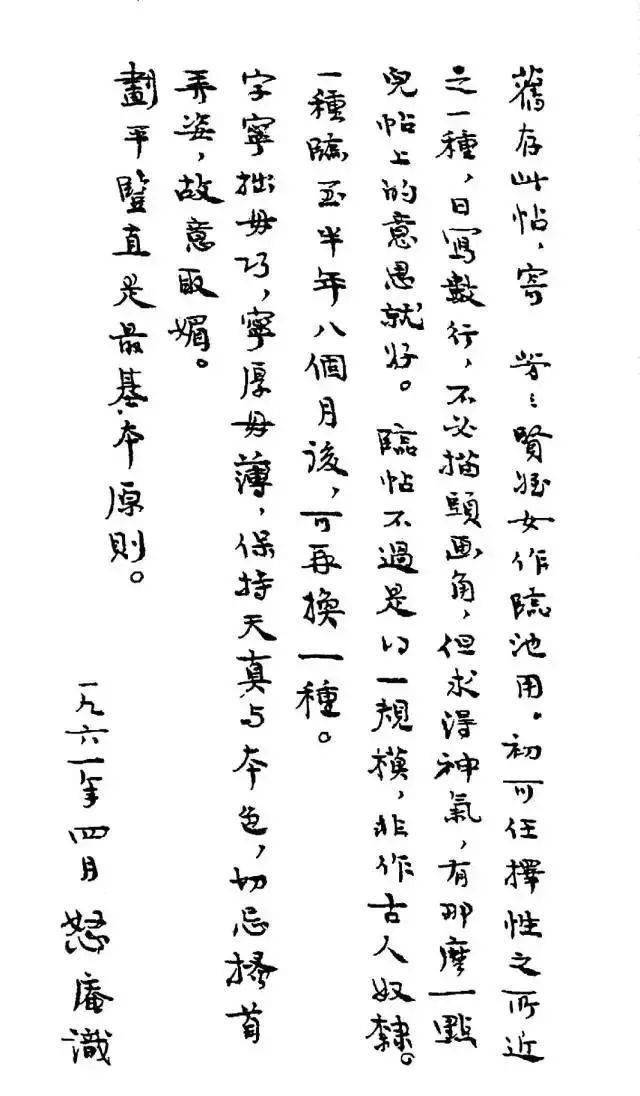 舊存此帖，寄 勞〻賢姪女作臨池用。初可任擇性之所近
之一種，日寫數行，不必描頭画角，但求得神氣，有那麼一點
兒帖上的意思就好。臨帖不過是得一規模，非作古人奴隸。
一種臨至半年八個月後，可再換一種。
字寧拙毋巧，寧厚毋薄，保持天真与本色，切忌搔首
弄姿，故意取媚。
劃平豎直是最基本原則。
一九六一年四月 怒庵識